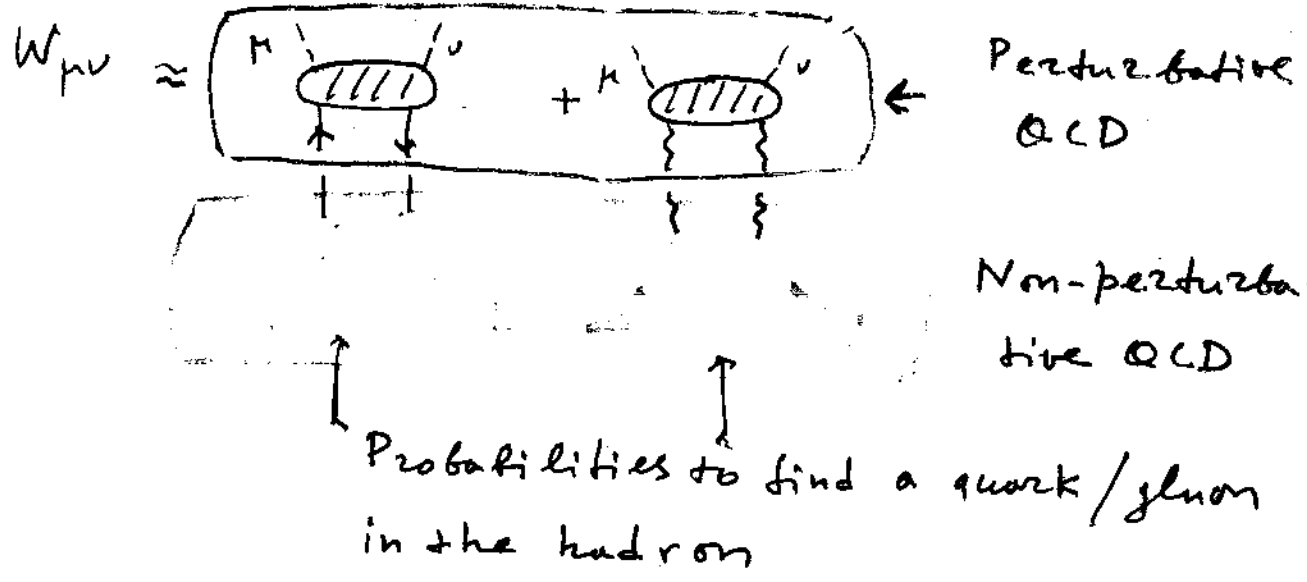 W_μν ≈ μ ν + μ ν ← Perturbative
QCD
Non-perturba
tive QCD
Probabilities to find a quark/gluon
in the hadron